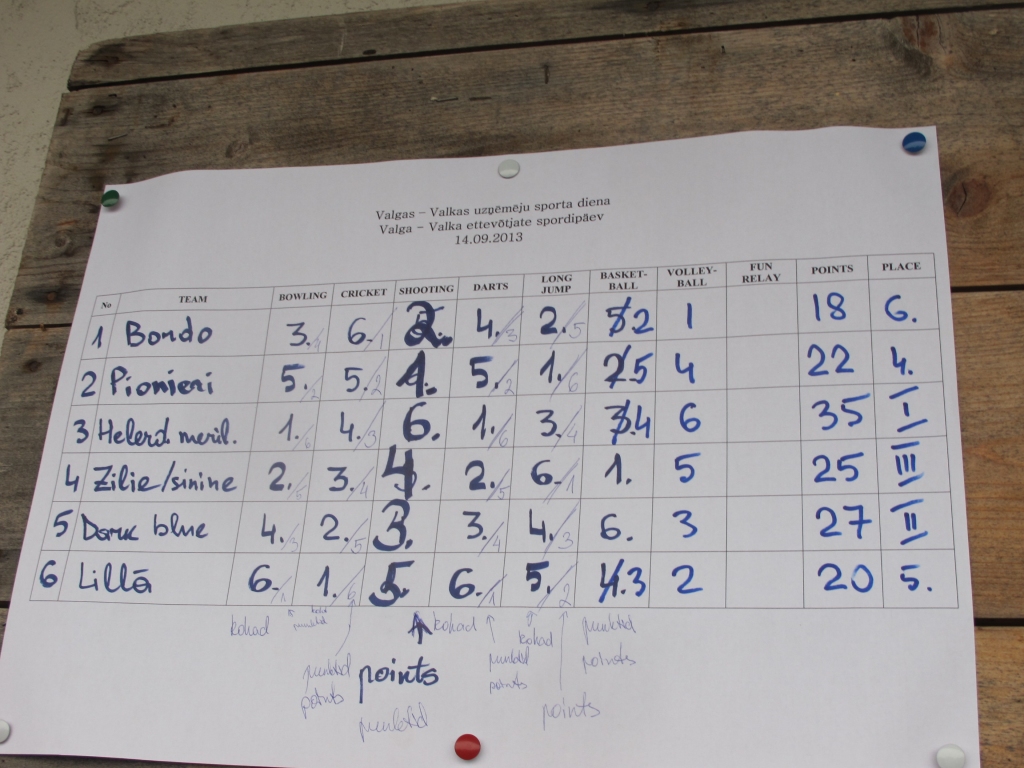 Valgas – Valkas uzņēmēju sporta diena
Valga – Valka ettevõtjate spordipäev
14.09.2013
No TEAM BOWLING CRICKET SHOOTING DARTS LONG JUMP BASKET-BALL VOLLEY-BALL FUN RELAY POINTS PLACE
1 Bondo 3./4 6./1 2. 4./3 2./5 2 1 18 6.
2 Pionieri 5./2 5./2 1. 5./2 1./6 5 4 22 4.
3 Helerd. meril. 1./6 4./3 6. 1./6 3./4 4 6 35 I
4 Zilie/sinine 2./5 3./4 4. 2./5 6./1 1. 5 25 III
5 Dark blue 4./3 2./5 3. 3./4 4./3 6. 3 27 II
6 Lillā 6./1 1./6 5. 6./1 5./2 3 2 20 5.
kohad punktid kohad kohad punktid
punktid points punktid points
points points points
punktid